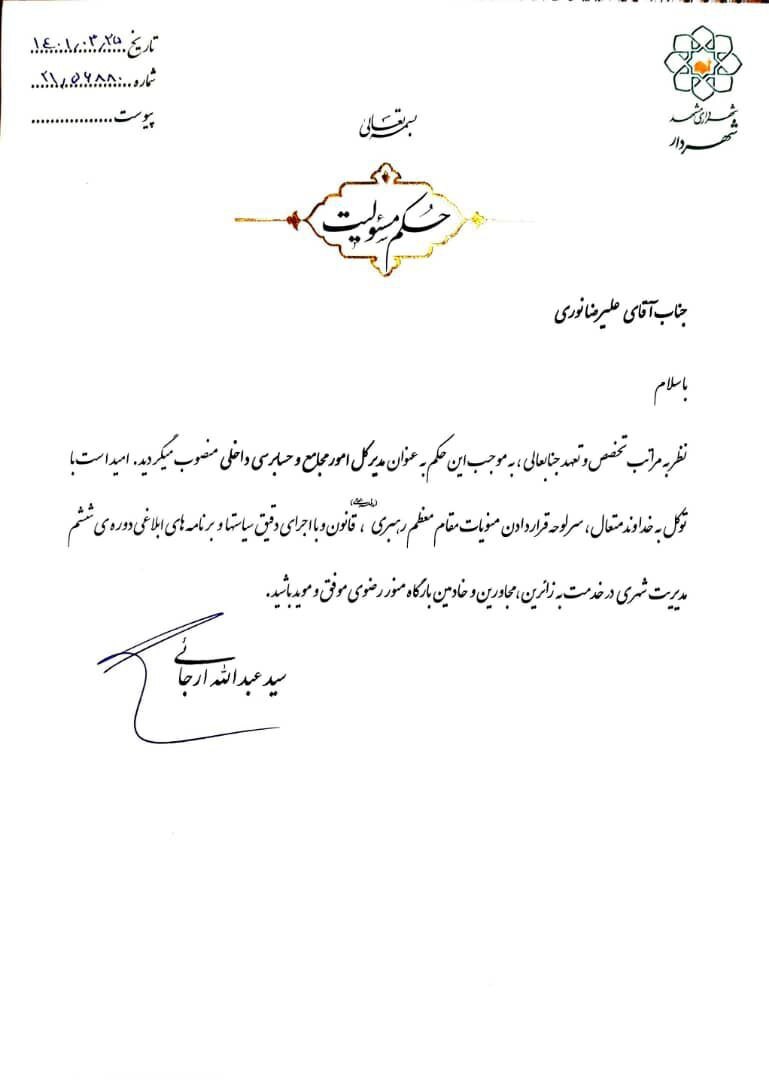 شهرداری مشهد
شهردار
تاریخ ۱٤۰۱٫۰۳٫۲۵
شماره ۲۱٫۵۶۸۸۰
پیوست
بسمه تعالی
حکم مسئولیت
جناب آقای علیرضا نوری
با سلام
نظر به مراتب تخصص و تعهد جنابعالی، به موجب این حکم به عنوان مدیر کل امور مجامع و حسابرسی داخلی منصوب میگردید. امید است با
توکل به خداوند متعال، سرلوحه قرار دادن منویات مقام معظم رهبری، قانون و با اجرای دقیق سیاستها و برنامه های ابلاغی دوره ی ششم
مدیریت شهری در خدمت به زائرین، مجاورین و خادمین بارگاه منور رضوی موفق و موید باشید.
سید عبدالله ارجائی